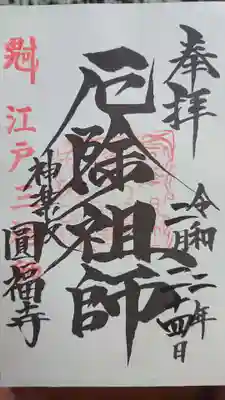 奉拝
令和二年
二月二十四日
厄除祖師
神楽坂
圓福寺
江戸二